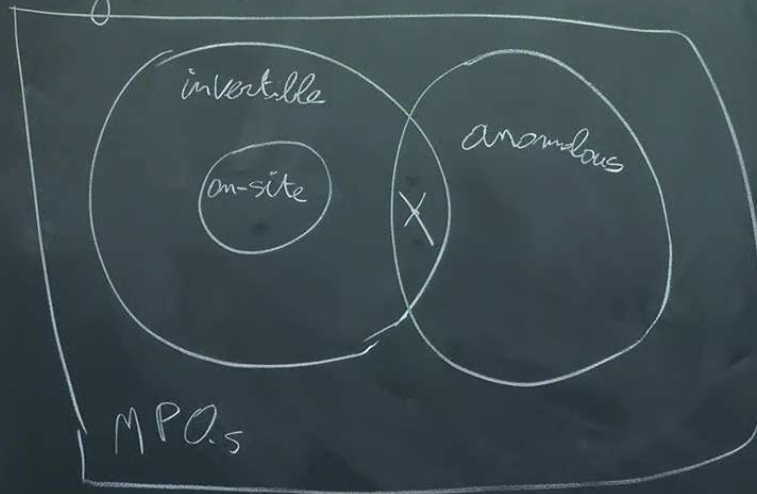 invertible
anomalous
on-site
X
MPOs